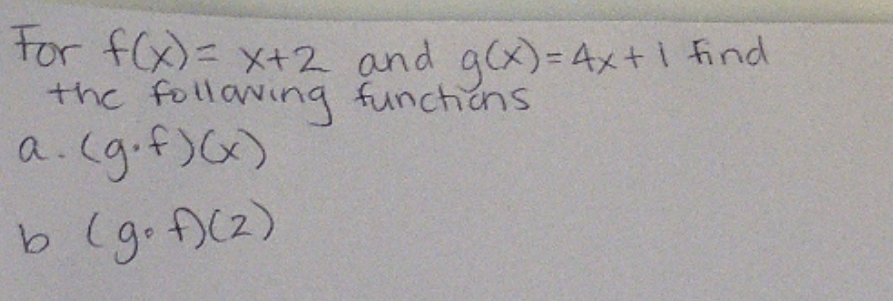 For f(x)= x+2 and g(x)=4x+1 find
the following functions
a. (g·f)(x)
b (g∘f)(2)